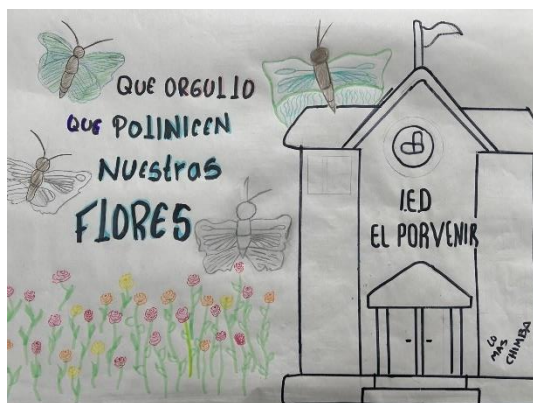 QUE ORGULLO
QUE POLINICEN
Nuestras
FLORES
I.E.D
EL PORVENIR
LO
MAS
CHIMBA